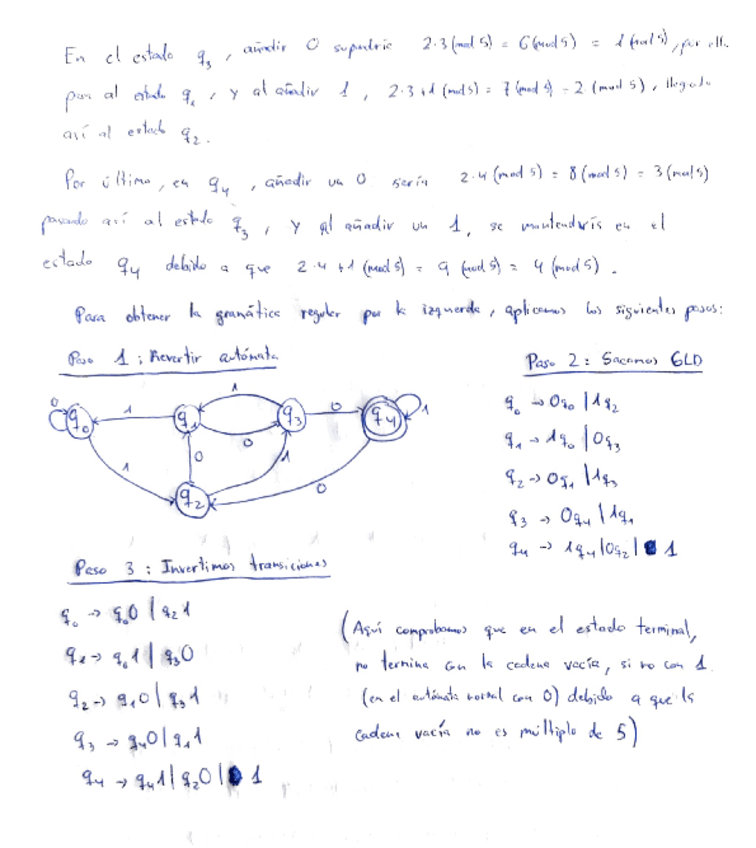 En el estado q₃, añadir 0 supondría 2·3 (mod 5) = 6 (mod 5) = 1 (mod 5), por ello
pasa al estado q₁, y al añadir 1, 2·3+1 (mod 5) = 7 (mod 5) = 2 (mod 5), llegando
así al estado q₂.
Por último, en q₄, añadir un 0 sería 2·4 (mod 5) = 8 (mod 5) = 3 (mod 5)
pasando así al estado q₃, y al añadir un 1, se mantendría en el
estado q₄ debido a que 2·4+1 (mod 5) = 9 (mod 5) = 4 (mod 5).
Para obtener la gramática regular por la izquerda, aplicamos los siguientes pasos:
Paso 1: Revertir autómata
0 q₀ 1 q₁ 1 0 q₃ 0 q₄ 1
1 0 1 0
q₂
Paso 2: Sacamos GLD
q₀ → 0q₀ | 1q₂
q₁ → 1q₀ | 0q₃
q₂ → 0q₁ | 1q₃
q₃ → 0q₄ | 1q₁
q₄ → 1q₄ | 0q₂ | 1
Paso 3: Invertimos transiciones
q₀ → q₀0 | q₂1
q₁ → q₀1 | q₃0
q₂ → q₁0 | q₃1
q₃ → q₄0 | q₁1
q₄ → q₄1 | q₂0 | 1
(Aquí comprobamos que en el estado terminal,
no termina con la cadena vacía, si no con 1
(en el autómata normal con 0) debido a que la
cadena vacía no es múltiplo de 5)